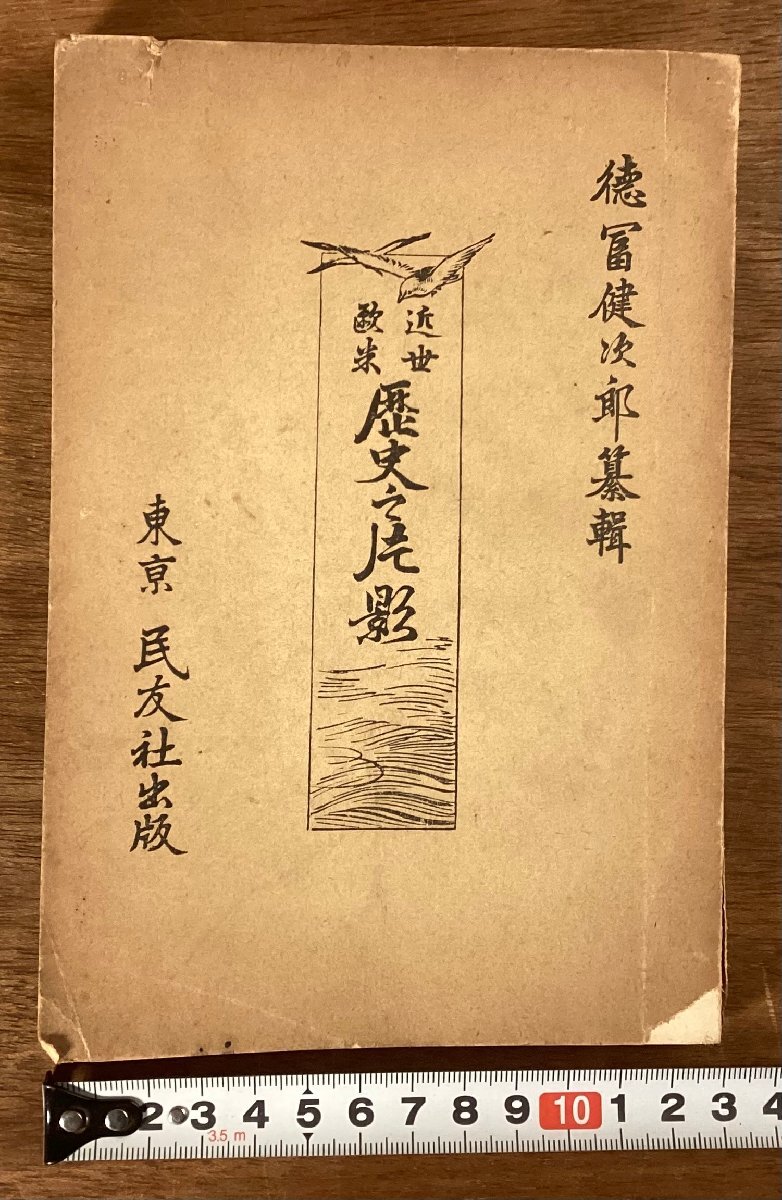 德冨健次郎纂輯
近世
歐米
歴史之片影
東京 民友社出版
2 3 4 5 6 7 8 9 10 1 2 3 4
3.5 m